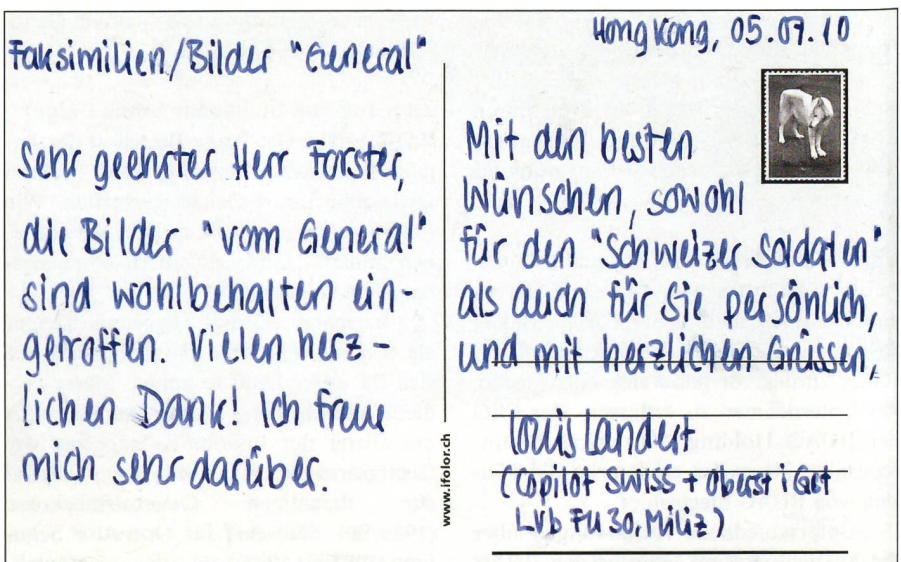 Hong Kong, 05.07.10
Faksimilien/Bilder "General"
Sehr geehrter Herr Forster,
die Bilder "vom General"
sind wohlbehalten ein-
getroffen. Vielen herz-
lichen Dank! Ich freue
mich sehr darüber
Mit den besten
Wünschen, sowohl
für den "Schweizer Soldaten"
als auch für Sie persönlich,
und mit herzlichen Grüssen,
Louis Landert
(Copilot Swiss + Oberst i Gst
Lvb Fu 30, Miliz)
www.ifolor.ch